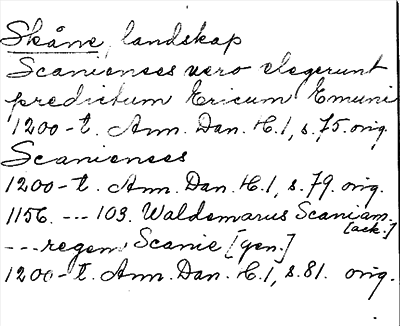 Skåne, landskap
Scanienses vero elegerunt
predictum Ericum Emuni
1200-t. Ann. Dan. H.1, s.75. orig.
Scanienses
1200-t. Ann. Dan. H.1, s.79. orig.
1156. --- 103. Waldemarus Scaniam
[ack.]
---regem Scanie [gen.]
1200-t. Ann. Dan. H.1, s.81. orig.